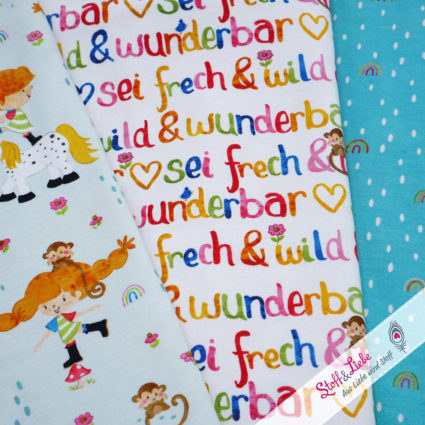 & wunderbar ♡
♡ sei frech &
sei frech & wild
wild & wunderbar
♡ sei frech &
wunderbar ♡
frech & wild
& wunderbar ♡
sei frech &
wunderbar ♡
Stoff & Liebe
Aus Liebe wird Stoff